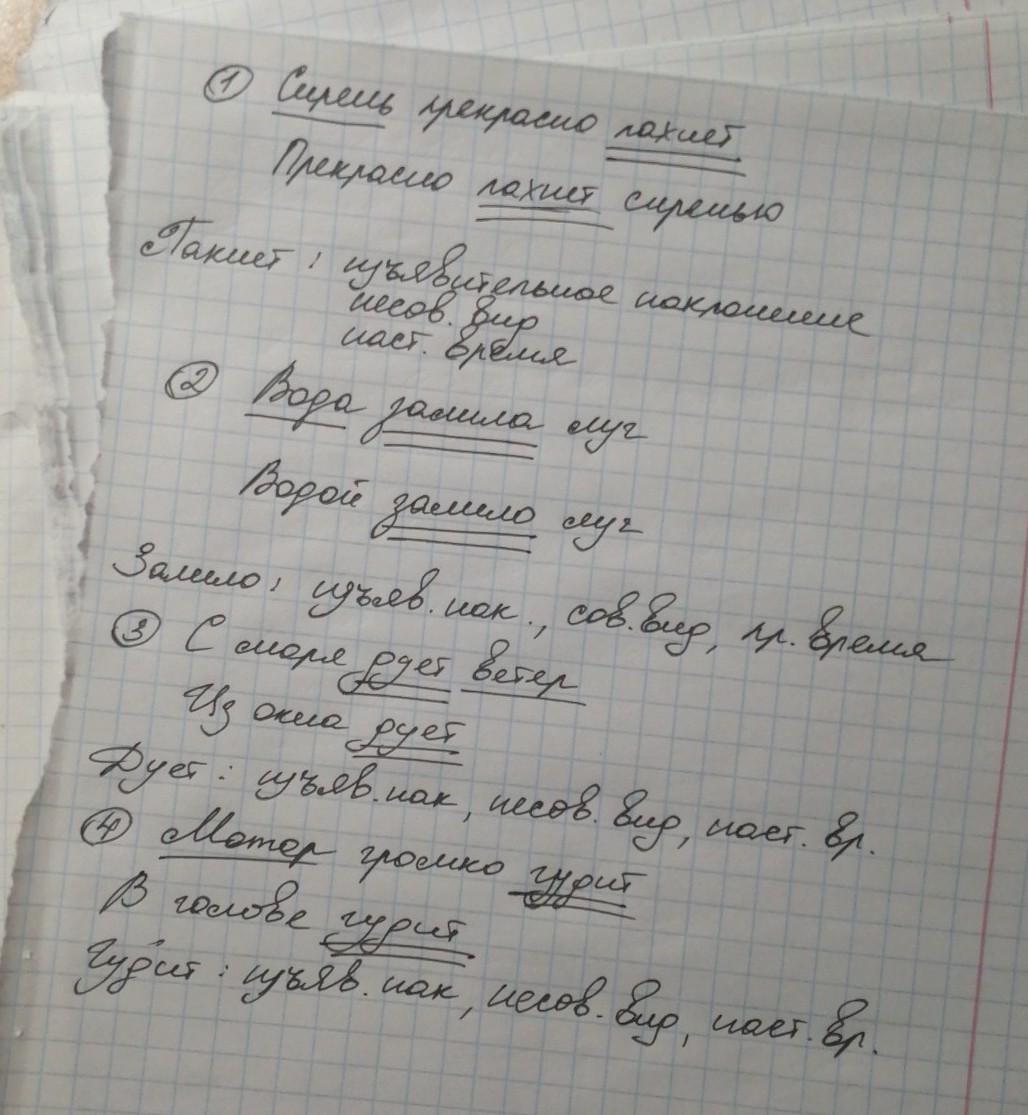 ① Сирень прекрасно пахнет
Прекрасно пахнет сиренью
Пахнет: изъявительное наклонение
несов. вид
наст. время
② Вода залила луг
Водой залило луг
Залило: изъяв. нак., сов. вид, пр. время
③ С моря дует ветер
Из окна дует
Дует: изъяв. нак, несов. вид, наст. вр.
④ Мотор громко гудит
В голове гудит
Гудит: изъяв. нак, несов. вид, наст. вр.